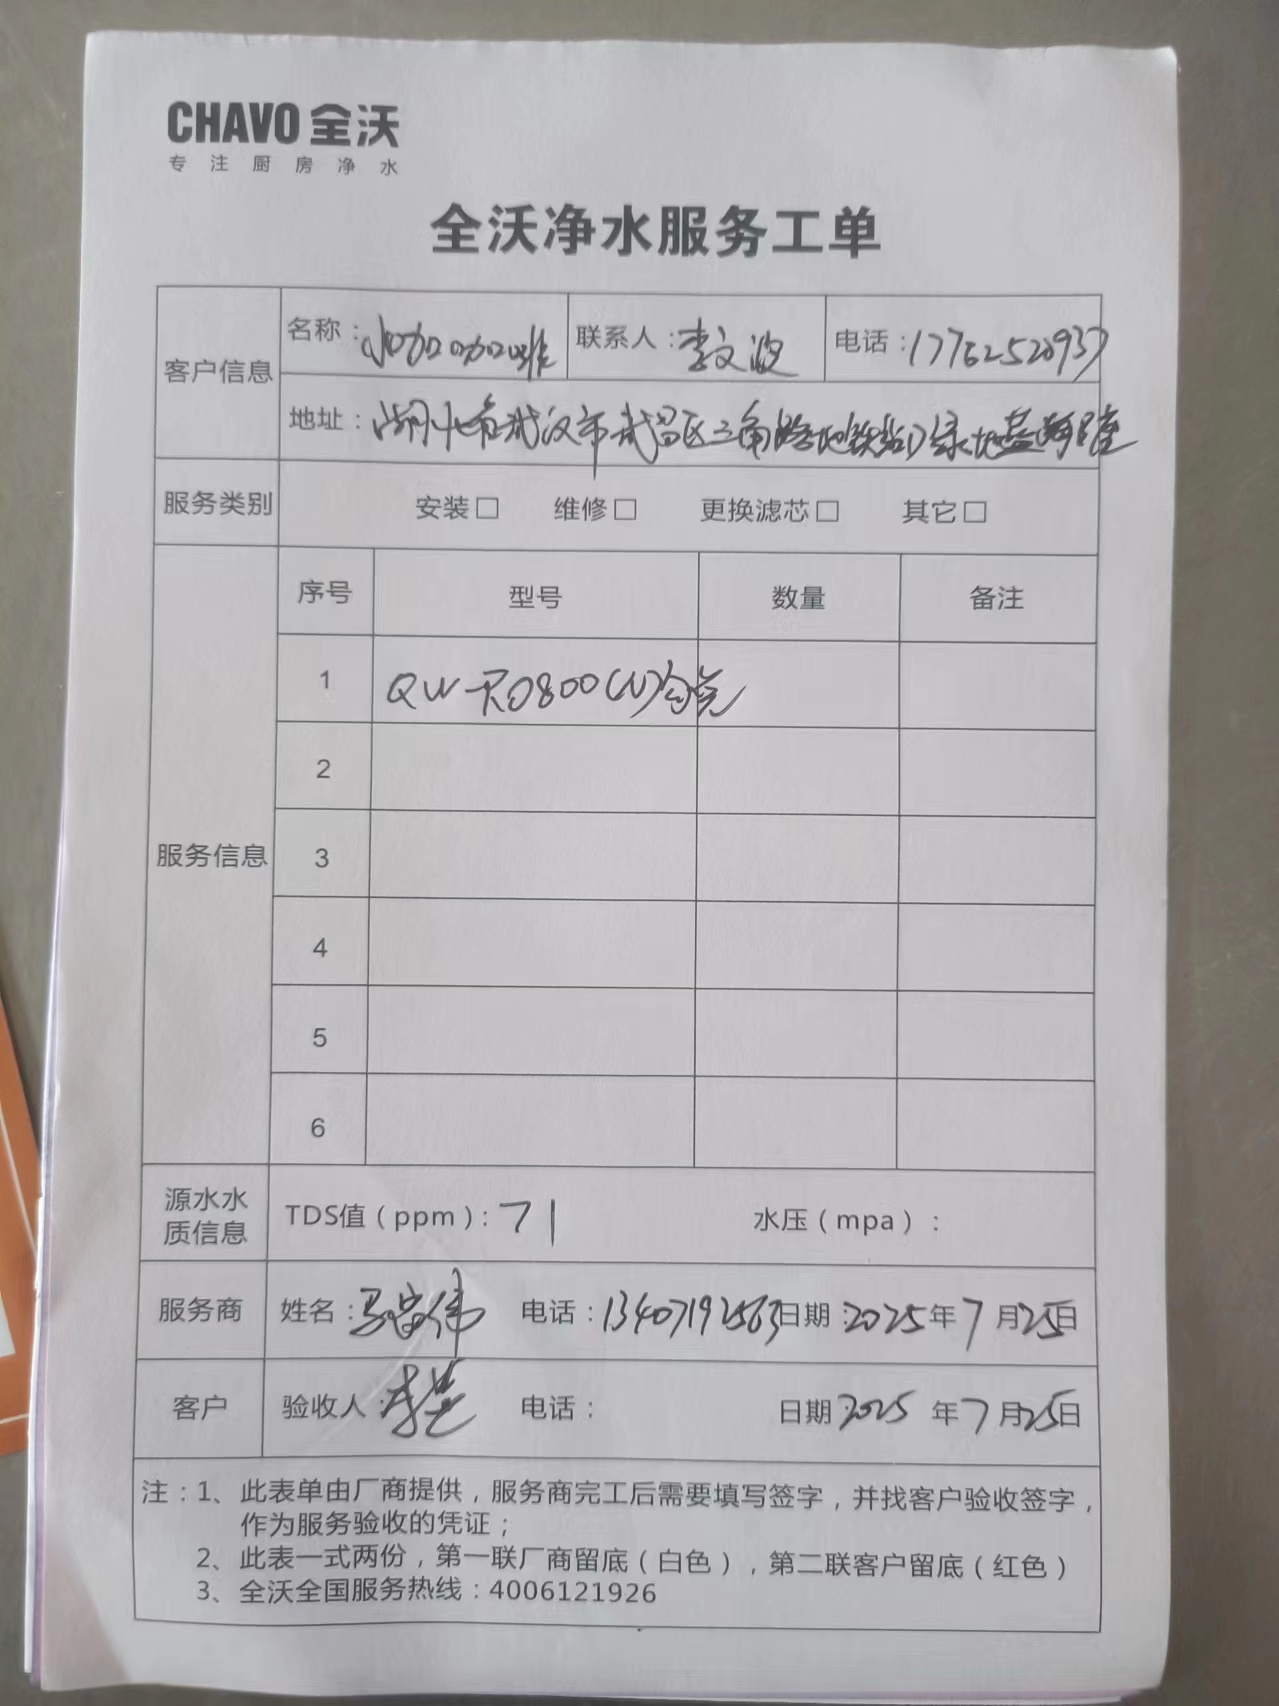 CHAVO 全沃
专注厨房净水
全沃净水服务工单
客户信息
名称：咖啡
联系人：李文波
电话：17762520937
地址：湖北省武汉市武昌区三角路地铁站D绿地
服务类别
安装□ 维修□ 更换滤芯□ 其它□
服务信息
序号 型号 数量 备注
1 QW-RO800(N)
2
3
4
5
6
源水水质信息
TDS值（ppm）：71 水压（mpa）：
服务商 姓名：马富伟 电话：13407192563 日期：2025年7月25日
客户 验收人：李 电话： 日期：2025年7月25日
注：1、此表单由厂商提供，服务商完工后需要填写签字，并找客户验收签字，
作为服务验收的凭证；
2、此表一式两份，第一联厂商留底（白色），第二联客户留底（红色）
3、全沃全国服务热线：4006121926